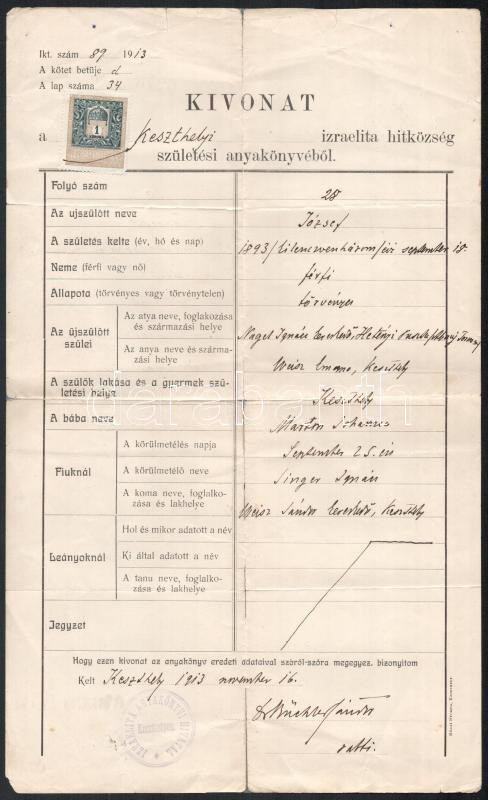 Ikt. szám 89 1913
A kötet betüje d
A lap száma 34
KIVONAT
1
a Keszthelyi izraelita hitközség
születési anyakönyvéből.
Folyó szám 28
Az ujszülött neve József
A születés kelte (év, hó és nap) 1893/kilencvenhárom/évi september 18.
Neme (férfi vagy nő) férfi
Állapota (törvényes vagy törvénytelen) törvényes
Az újszülött szülei
Az atya neve, foglakozása és származási helye Nagel Ignác kereskedő, Hetényi
Az anya neve és származási helye Weisz Emma, Keszthely
A szülők lakása és a gyermek születési helye Keszthely
A bába neve Marton Johanna
Fiuknál
A körülmetélés napja September 25.én
A körülmetélő neve Singer Ignác
A koma neve, foglalkozása és lakhelye Weisz Sándor kereskedő, Keszthely
Leányoknál
Hol és mikor adatott a név
Ki által adatott a név
A tanu neve, foglalkozása és lakhelye
Jegyzet
Hogy ezen kivonat az anyakönyv eredeti adataival szóról-szóra megegyez, bizonyitom
Kelt Keszthely 1913 november 16.
Dr Büchler Sándor
rabbi.
darabanth